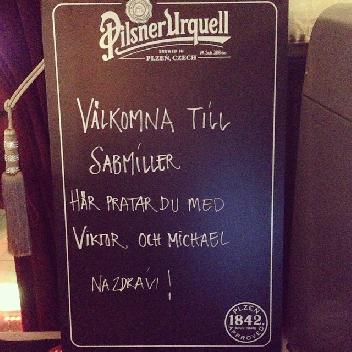 Pilsner Urquell
BREWED IN
PLZEN, CZECH
VÄLKOMNA TILL
SABMILLER
HÄR PRATAR DU MED
VIKTOR OCH MICHAEL
NAZDRAVI!
PLZEN
1842
APPROVED